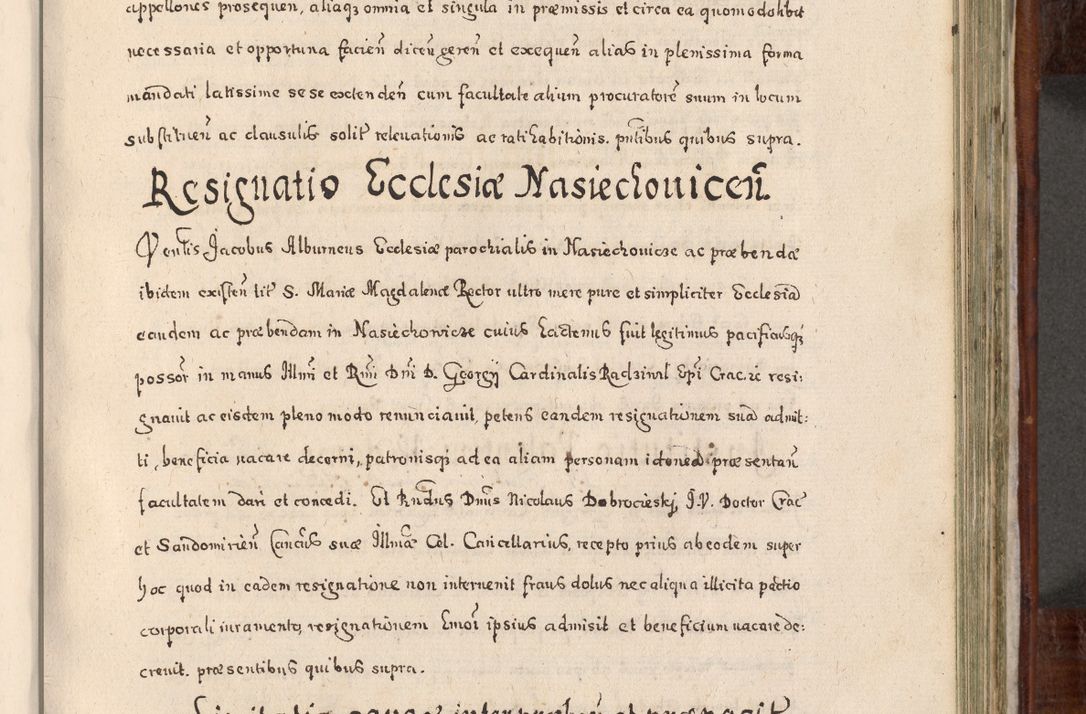 appellones prosequen, aliaq3 omnia et singula in præmissis et circa ea quomodolibet
necessaria et opportuna facien̄ dicen̄ geren̄ et exequen̄ alias in plenissima forma
mandati latissime sese extenden̄ cum facultate alium procuratorē suum in locum
substituen̄ ac clausulis solit̄ releuationis ac ratihabitionis. pn̄tibus quibus supra.
Resignatio Ecclesiæ Nasiechouicen̄.
Jacobus Alburneus Ecclesiæ parochialis in Nasiechouicze ac præbendæ
ibidem existen̄ tit̄ S. Mariæ Magdalenæ Rector ultro mere pure et simpliciter Ecclesiā
eandem ac præbendam in Nasiechowicze cuius hactenus fuit legitimus pacificusq3
possor̄ in manus Illmī et Rmī Dnī D. Georgÿ Cardinalis Radziuil Epī Crac. &c resi:
gnauit ac eisdem pleno modo renunciauit, petens eandem resignationem suā admit:
ti, beneficia uacare decerni, patronisq3 ad ea aliam personam idoneā præsentan̄
facultatem dari et concedi. Et Rndūs Dnūs Nicolaus Dobrocieskj, J.V. Doctor Crac̄
et Sandomirien̄ Cancūs suæ Illmæ Cel. Cancellarius, recepto prius ab eodem super
hoc quod in eadem resignatione non interuenit fraus dolus nec aliqua illicita pactio
corporali iuramento, resignationem ipsius admisit et beneficium uacare de:
creuit. præsentibus quibus supra.